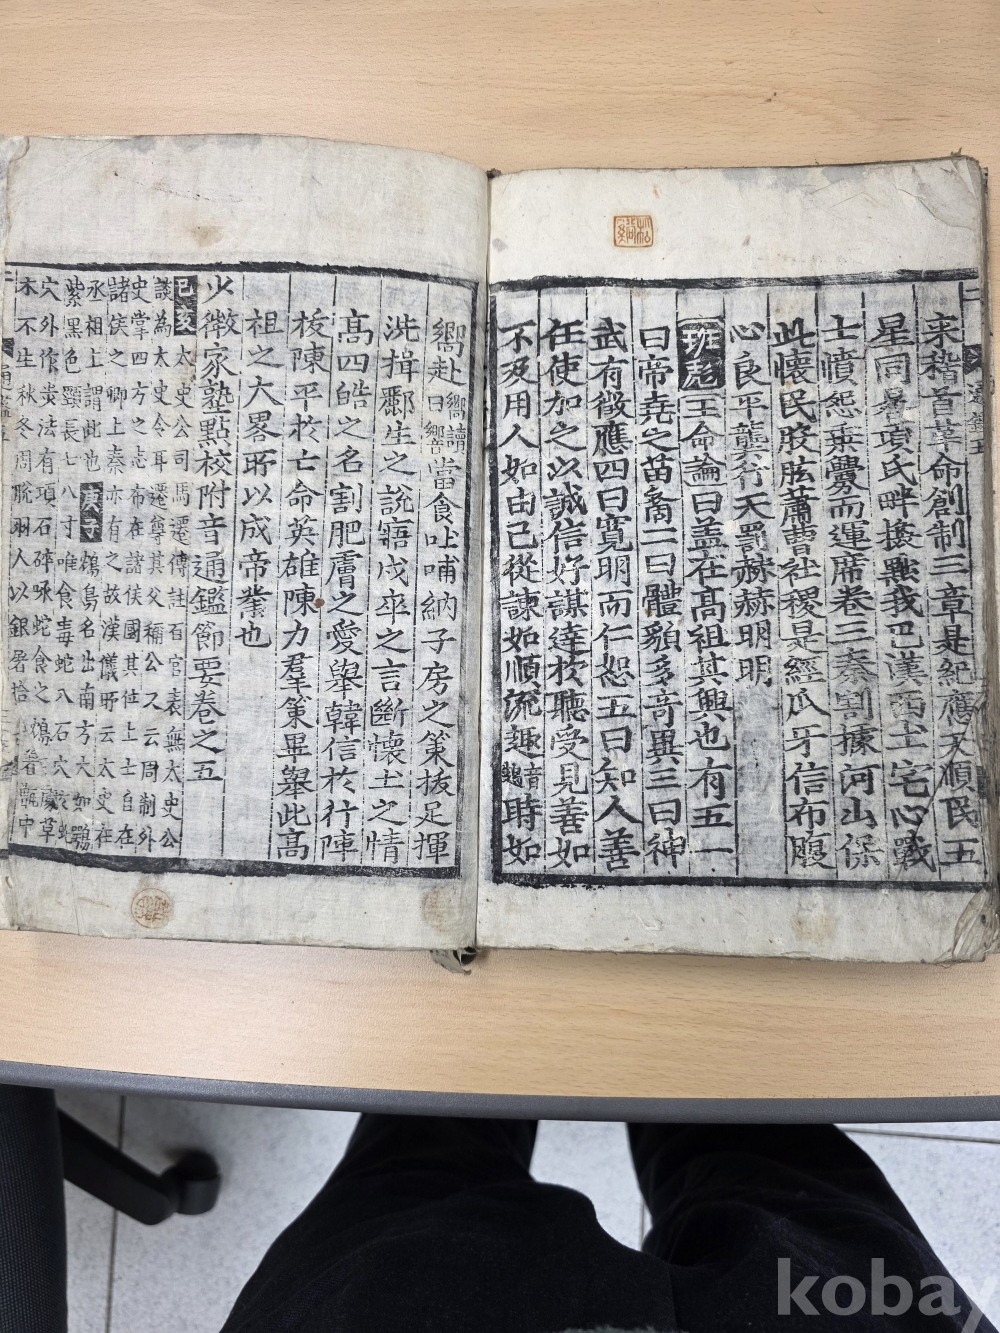 來稽首革命創制三章是紀應天順民五
星同晷項氏畔換黜我巴漢西土宅心戰
士憤怨乘釁而運席卷三秦割據河山保
此懷民股肱蕭曹社稷是經爪牙信布腹
心良平龔行天罰赫赫明明
班彪王命論曰盖在髙祖其興也有五一
曰帝堯之苗裔二曰體貌多奇異三曰神
武有徵應四曰寬明而仁恕五曰知人善
任使加之以誠信好謀達於聽受見善如
不及用人如由己從諫如順流趣音趨時如
嚮赴嚮讀曰響當食吐哺納子房之策拔足揮
洗揖酈生之說寤戍卒之言斷懷土之情
髙四皓之名割肥膚之愛舉韓信於行陣
收陳平於亡命英雄陳力羣策畢舉此髙
祖之大畧所以成帝業也
少微家塾點校附音通鑑節要卷之五
己亥 太史公司馬遷傳註百官表無太史公
談為太史令耳遷尊其父稱公又云周制外
史掌四方之志布在諸侯國其位上士自在
諸侯之卿上秦亦有之故漢儀所云太史在
丞相上謂此也 庚子 鴆鳥名出南方大如鶚
紫黑色頸長七八寸唯食毒蛇入石穴
穴外作
木不生秋冬周脫羽人以銀
kobay